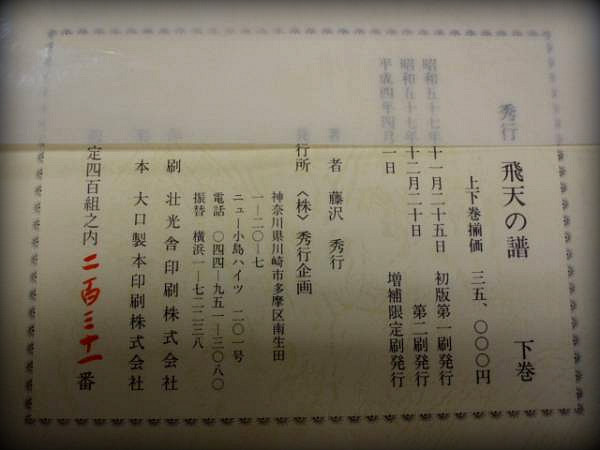 秀行 飛天の譜 下巻
上下巻揃価 三五、〇〇〇円
昭和五十七年十一月二十五日 初版第一刷発行
昭和五十七年十二月二十日 第二刷発行
平成四年四月一日 増補限定刷発行
著者 藤沢秀行
発行所 〈株〉秀行企画
神奈川県川崎市多摩区南生田
一ー二〇ー七
ニュー小島ハイツ 二〇一号
電話 〇四四ー九五一ー三〇八〇
振替 横浜一ー七二二三八
印刷 壮光舎印刷株式会社
製本 大口製本印刷株式会社
限定四百組之内 二百三十一番